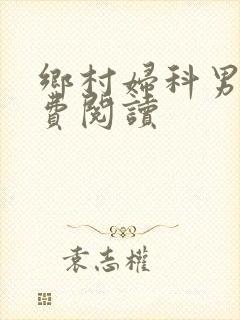 鄉村婦科男
費閱讀
袁志權